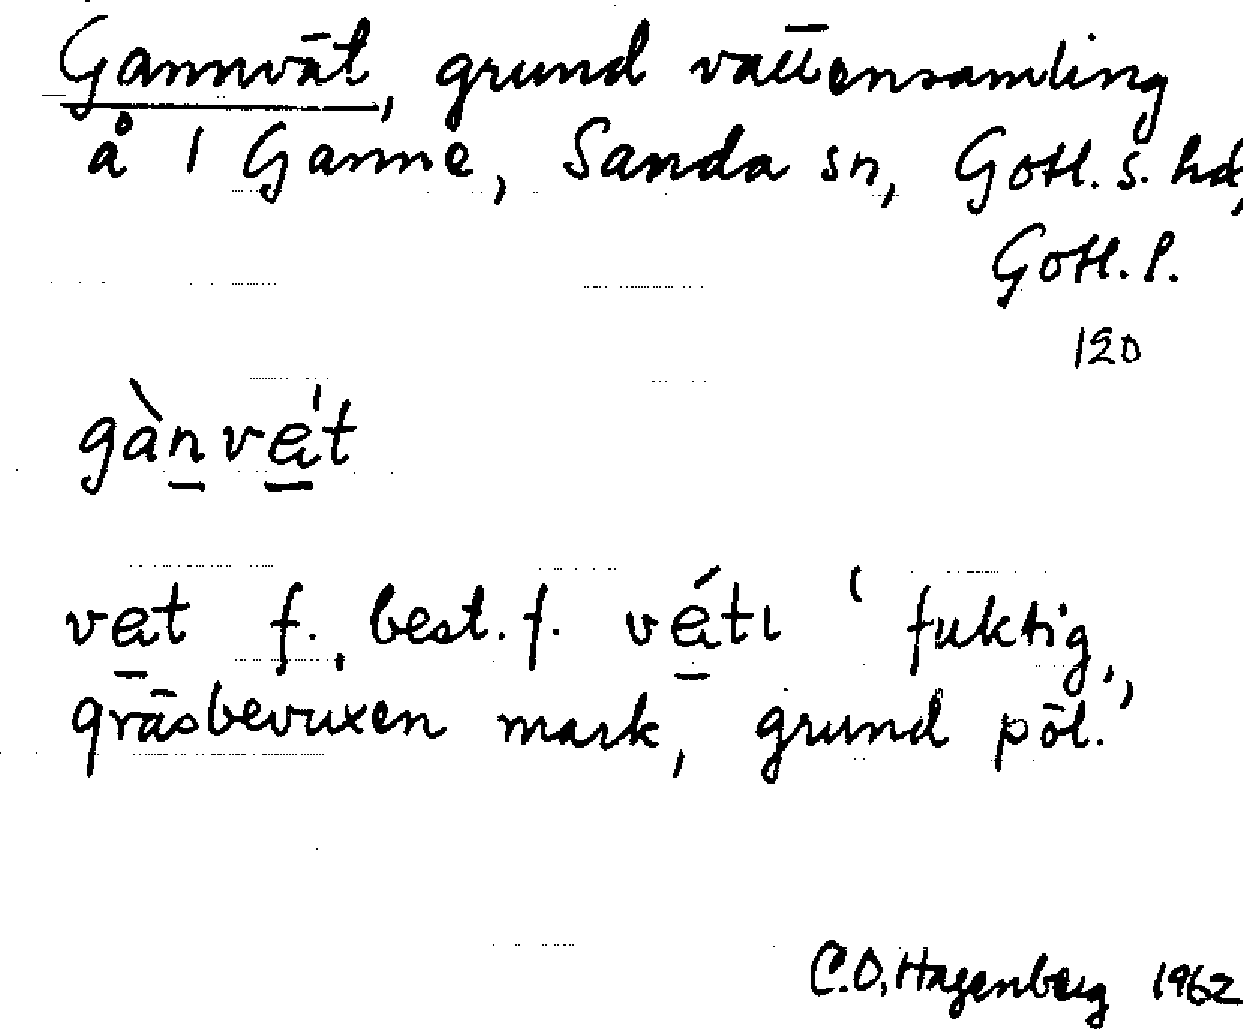 Gannvät, grund vattensamling
å 1 Ganne, Sanda sn, Gotl. s. hd,
Gotl. l.
120
gànvet
vet f., best. f. véti 'fuktig,
gräsbevuxen mark, grund pöl.'
C.O. Hagenberg 1962